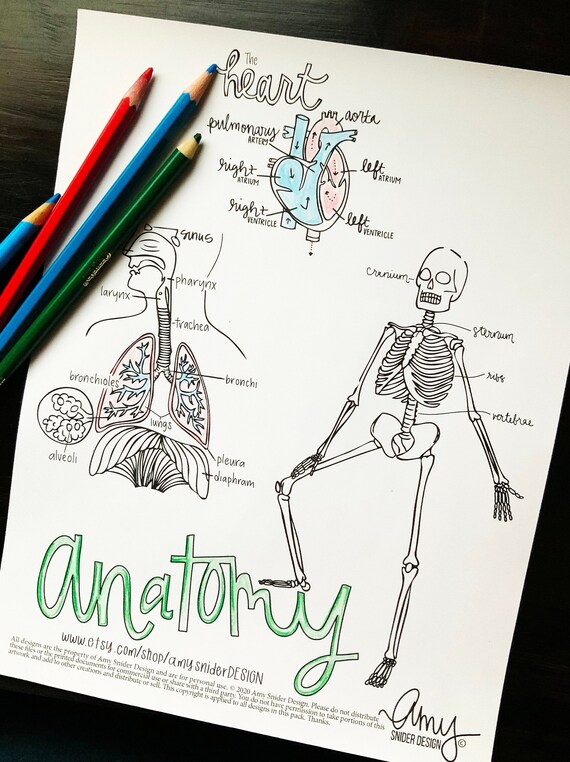 The
heart
aorta
pulmonary
ARTERY
right
ATRIUM
left
ATRIUM
right
VENTRICLE
left
VENTRICLE
sinus
pharynx
larynx
trachea
bronchioles
bronchi
lungs
alveoli
pleura
diaphram
cranium
sternum
ribs
vertebrae
anatomy
www.etsy.com/shop/amysniderDESIGN
All designs are the property of Amy Snider Design and are for personal use. © 2020 Amy Snider Design. Please do not distribute
these tiles or the printed documents for commercial use or share with a third party. You do not have permission to take portions of this
artwork and add to other creations and distribute or sell. This copyright is applied to all designs in this pack. Thanks.
Amy
SNIDER DESIGN ©